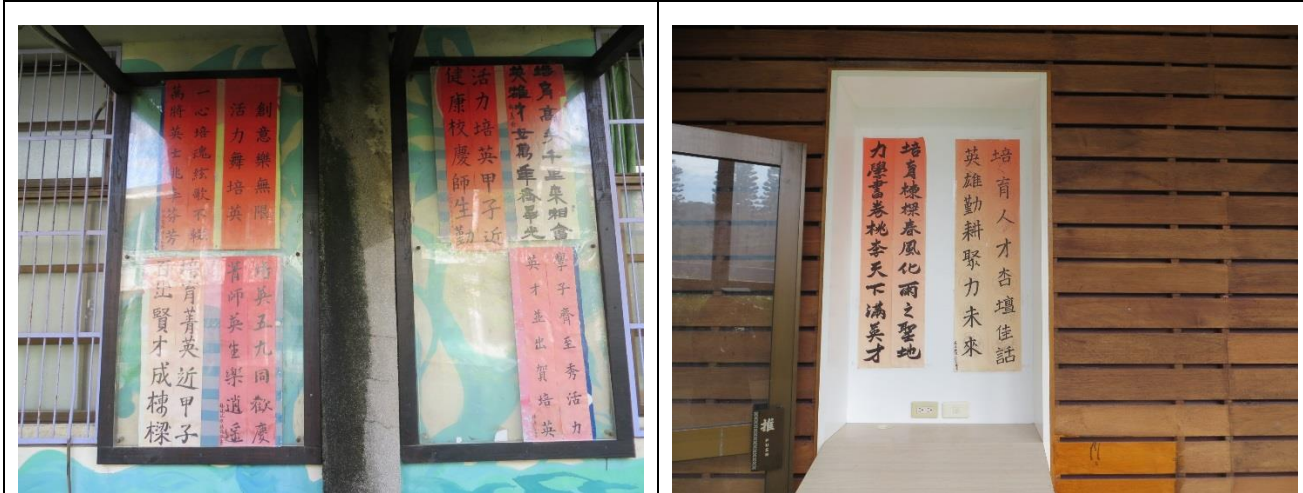 創意樂無限
活力舞培英
一心培弦歌不輟
萬將英士桃李芬芳
培英五九同歡慶
菁師英生樂逍遙
育菁英近甲子
出賢才成棟樑
培育高千里來相會
英雄才女萬年齊
活力培英甲子近
健康校慶師生勤
學子齊至秀活力
英才並出賀培英
培育人才杏壇佳話
英雄勤耕聚力未來
培育棟樑春風化雨之聖地
力學書卷桃李天下滿英才
推